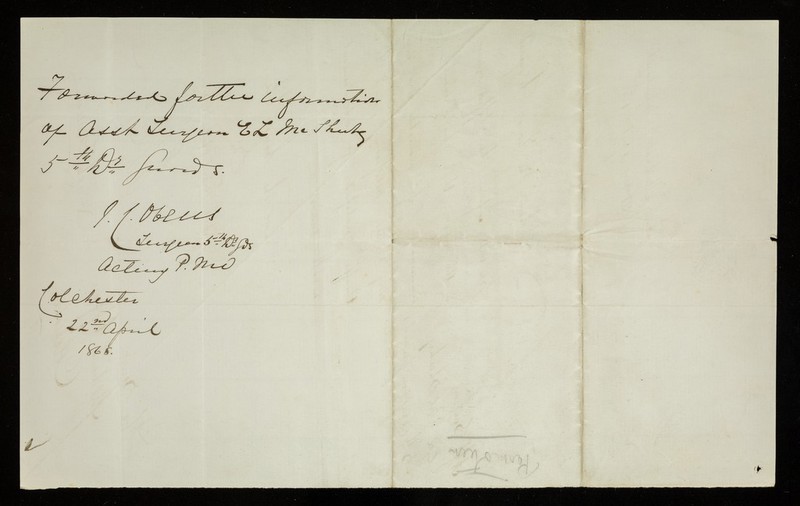 Forwarded for the information
of Asst Surgeon E L Mc Sheehy
5th Dr Guards.
Surgeon 5th Dr Gds
Acting P. M O
Colchester
22nd April
186